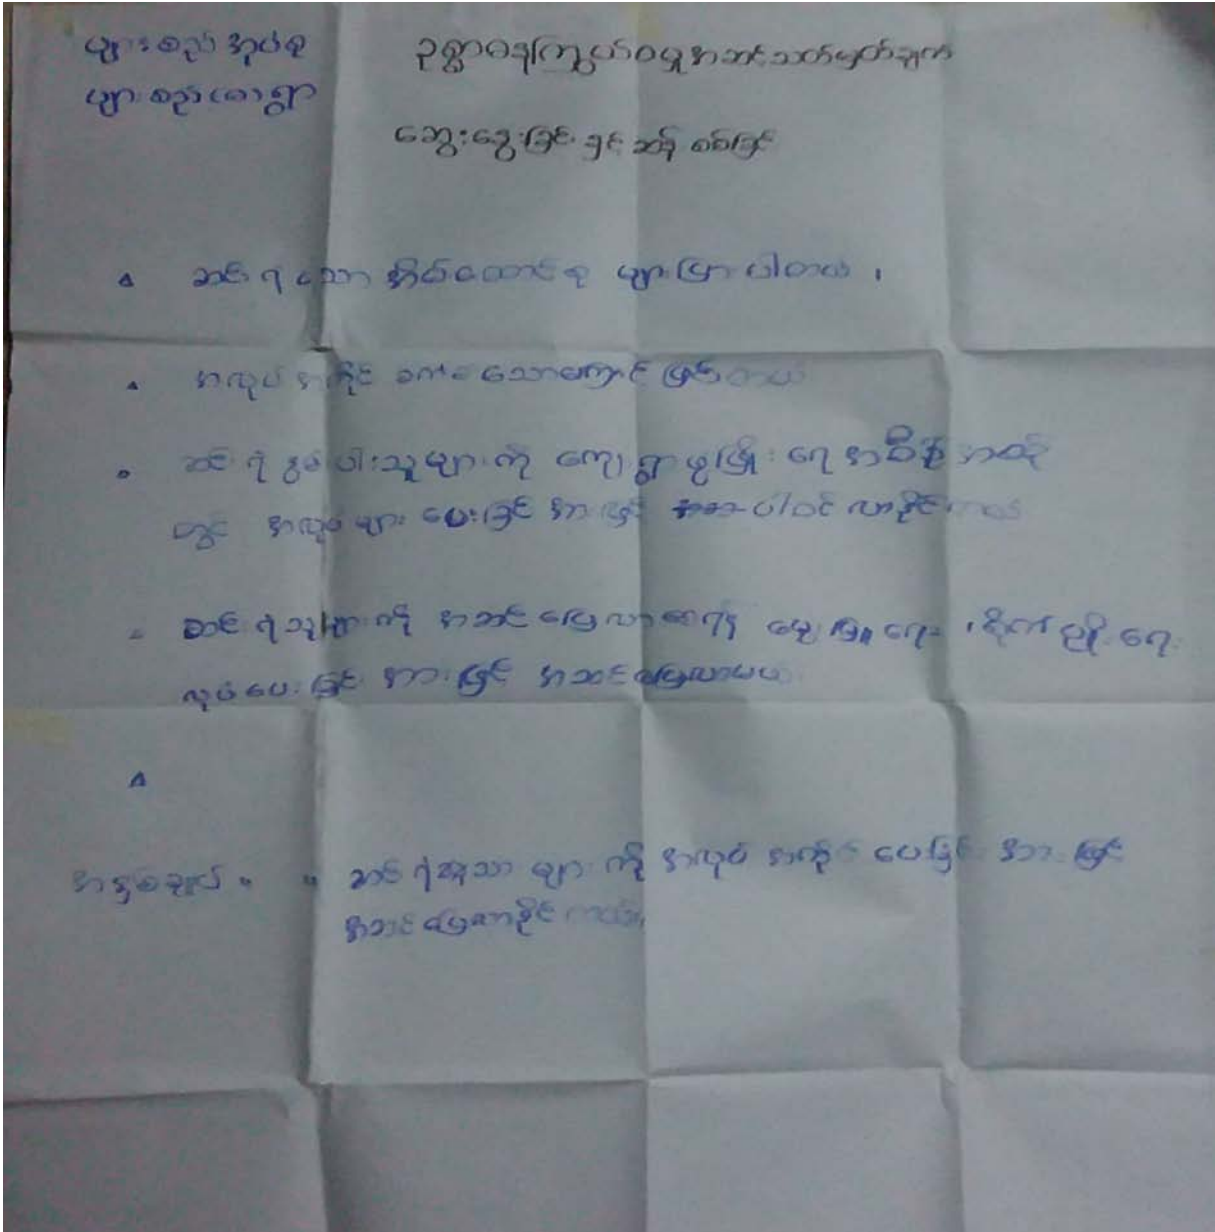 များစည်အုပ်စု
များစည်ကျေးရွာ
ဥစ္စာဓနကြွယ်ဝမှုအဆင့်သတ်မှတ်ချက်
ဆွေးနွေးခြင်း နှင့် ဆန်းစစ်ခြင်း
ဆင်းရဲသော အိမ်ထောင်စု များပြားပါတယ် ၊
အလုပ် အကိုင် ခက်ခဲသောကြောင့် ဖြစ်တယ်
ဆင်းရဲ နွမ်းပါးသူများကို ကျေးရွာဖွံ့ဖြိုးရေး အစီအစဉ်
တွင် အလုပ်များ ပေးခြင်းအားဖြင့် ပါဝင်လာနိုင်တယ်
ဆင်းရဲသူများကို အဆင်ပြေလာစေရန် မွေးမြူရေး ၊ စိုက်ပျိုးရေး
လုပ်ပေးခြင်းအားဖြင့် အဆင်ပြေလာမယ်
အနှစ်ချုပ် ။ ။ ဆင်းရဲသူများကို အလုပ် အကိုင် ပေးခြင်းအားဖြင့်
အဆင်ပြေလာနိုင်တယ်။